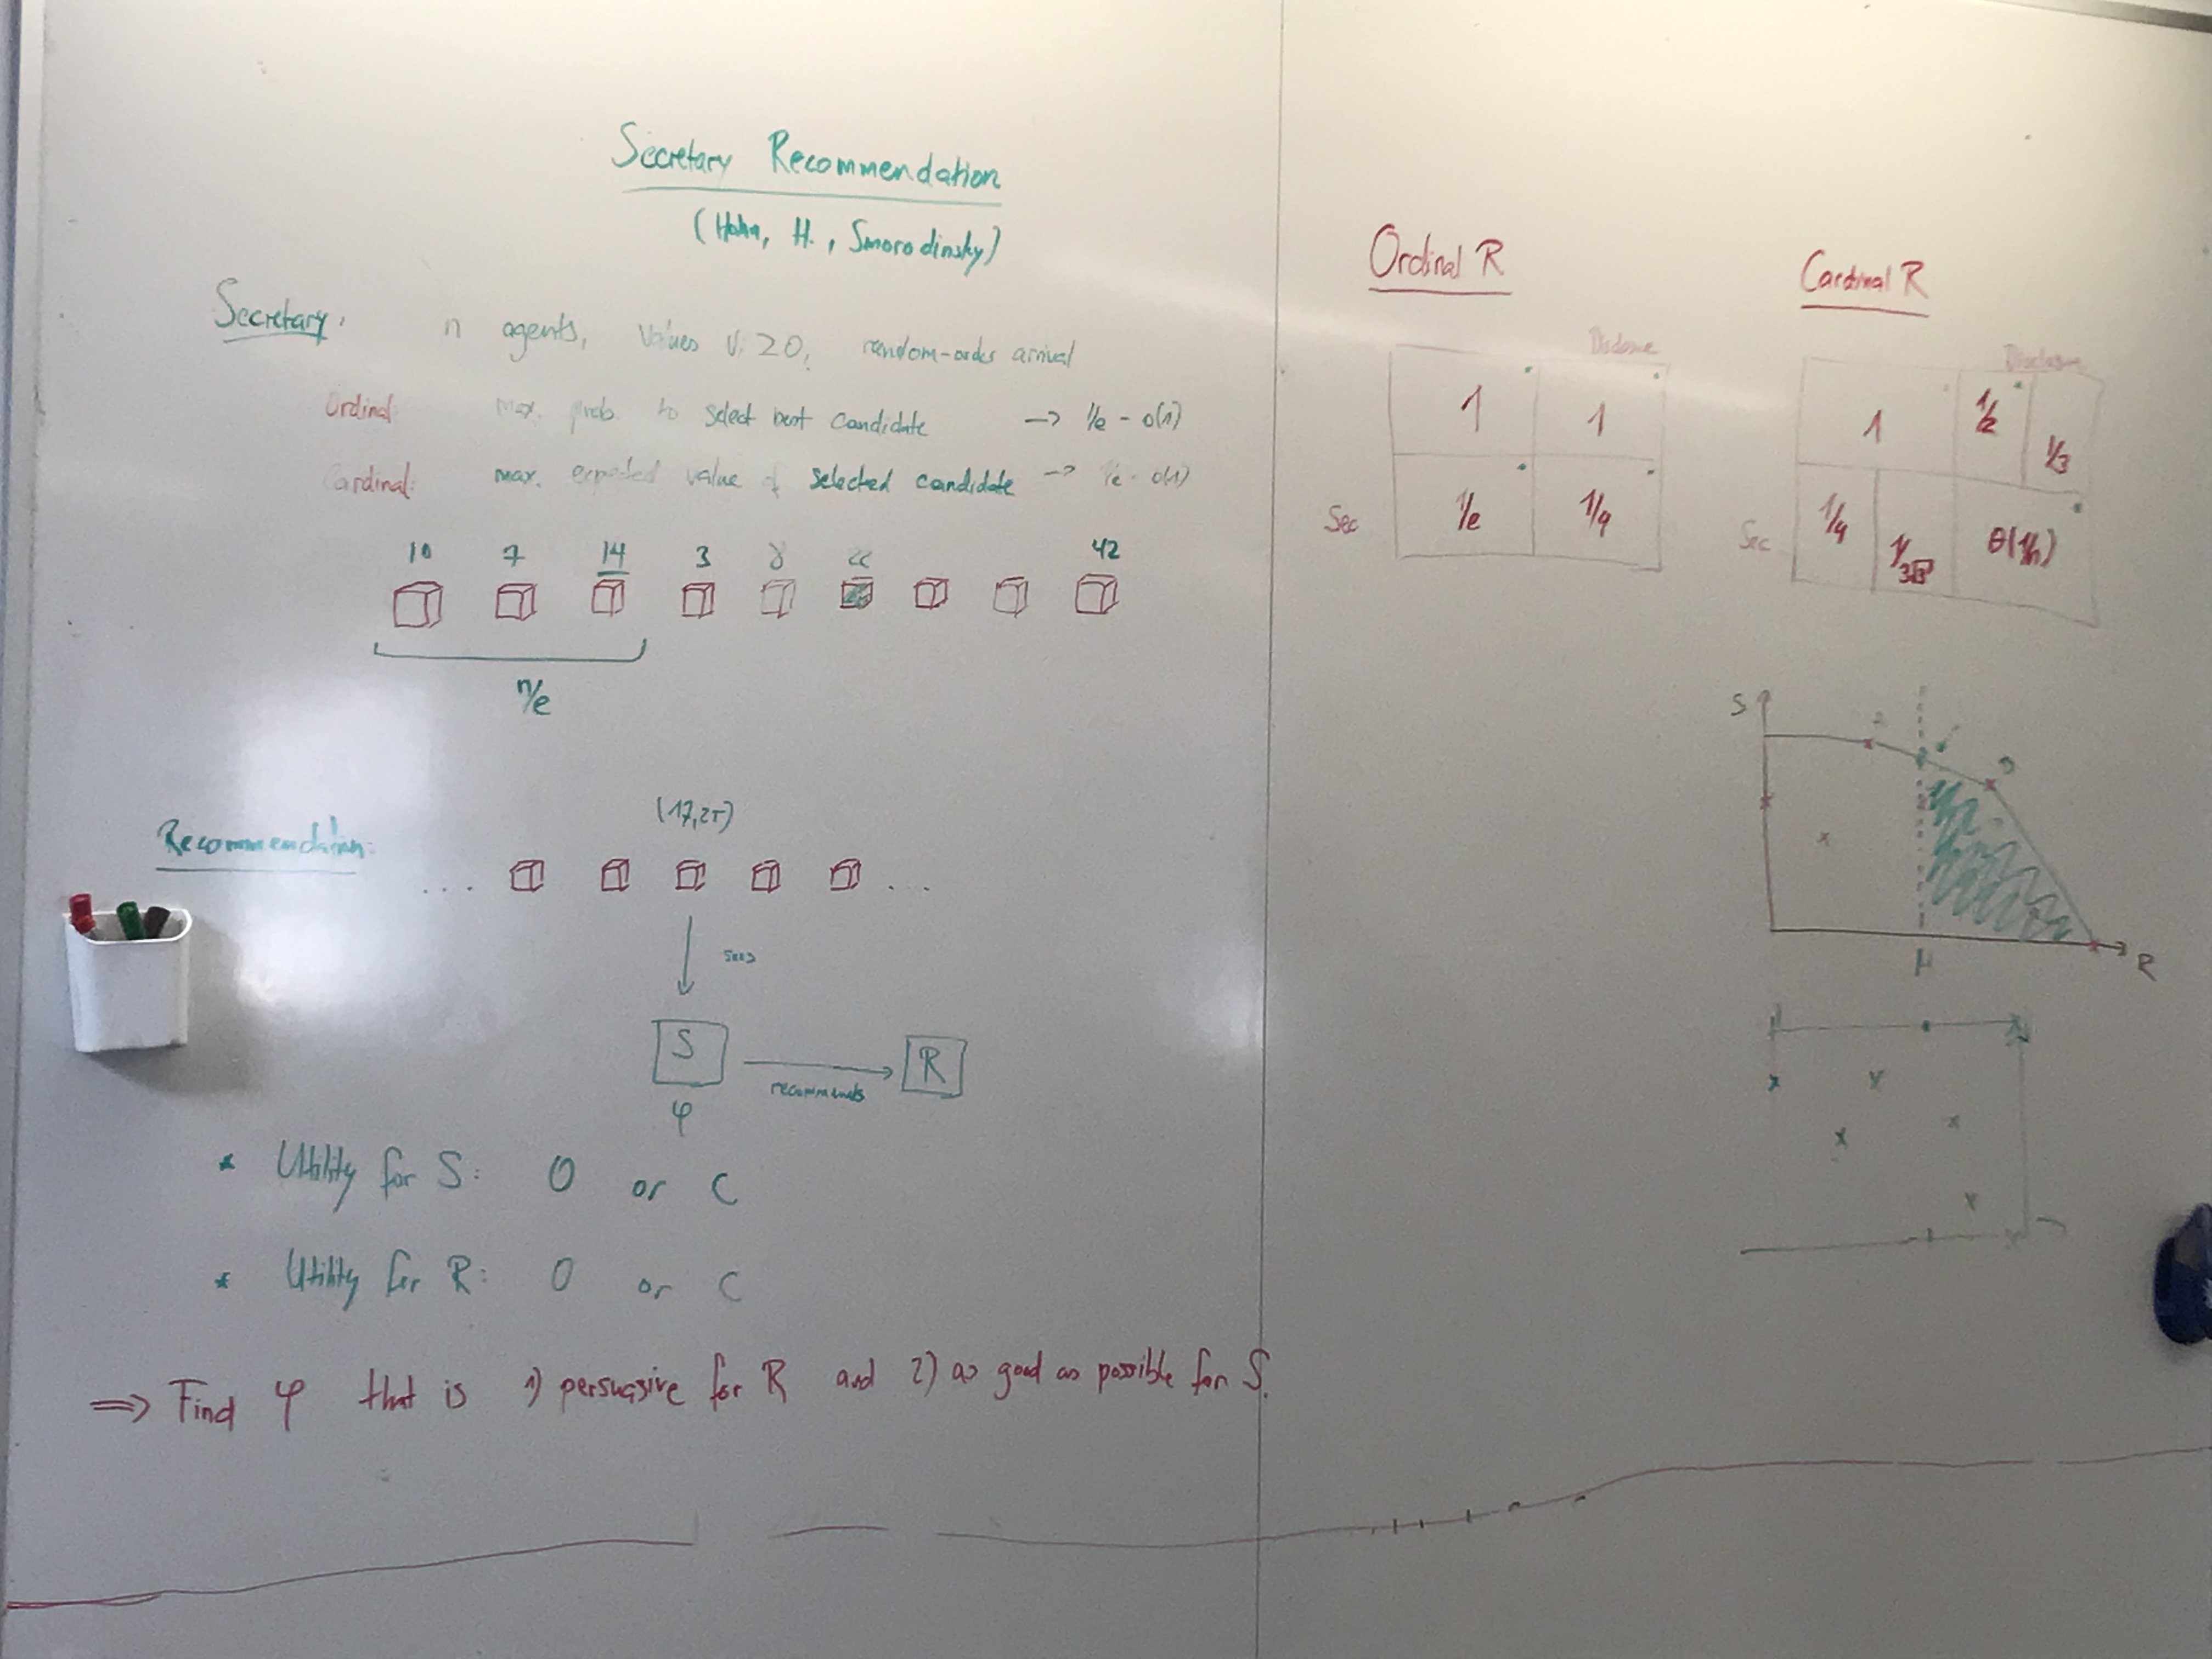 Secretary Recommendation
(Hahn, H., Smorodinsky)
Secretary: n agents, values vᵢ ≥ 0, random-order arrival
Ordinal: max. prob. to select best candidate → 1/e - o(1)
Cardinal: max. expected value of selected candidate → 1/e - o(1)
10 7 14 3 8 22 42
n/e
Recommendation:
(17,25)
.... ...
sees
S recommends R
φ
* Utility for S: O or C
* Utility for R: O or C
⇒ Find φ that is 1) persuasive for R and 2) as good as possible for S.
Ordinal R
Disclosure
1 1
Sec 1/e 1/4
Cardinal R
Disclosure
1 1/2 1/3
Sec 1/4 θ(1/n)
S
μ
R